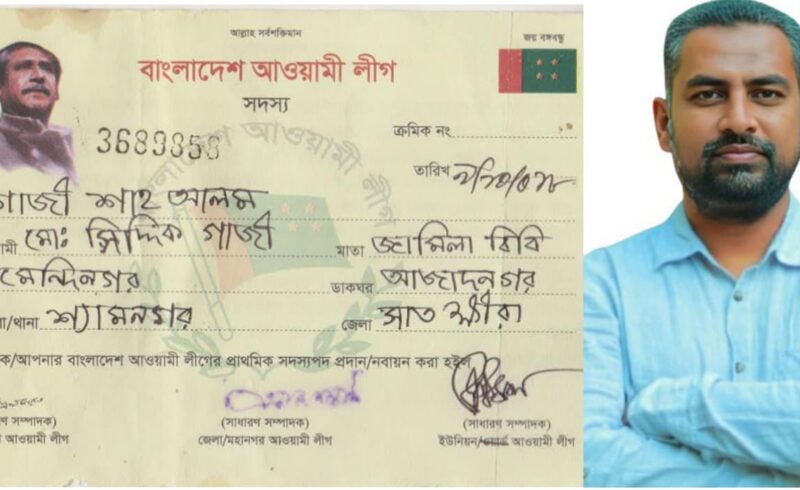 আল্লাহ সর্বশক্তিমান
জয় বঙ্গবন্ধু
বাংলাদেশ আওয়ামী লীগ
সদস্য
3689858
ক্রমিক নং
তারিখ
গাজী শাহ আলম
মোঃ সিদ্দিক গাজী মাতা জামিলা বিবি
মেন্দিনগর ডাকঘর আজাদনগর
/থানা শ্যামনগর জেলা সাতক্ষীরা
ক/আপনার বাংলাদেশ আওয়ামী লীগের প্রাথমিক সদস্যপদ প্রদান/নবায়ন করা হইল
রণ সম্পাদক) (সাধারণ সম্পাদক) (সাধারণ সম্পাদক)
আওয়ামী লীগ জেলা/মহানগর আওয়ামী লীগ ইউনিয়ন/ওয়ার্ড আওয়ামী লীগ